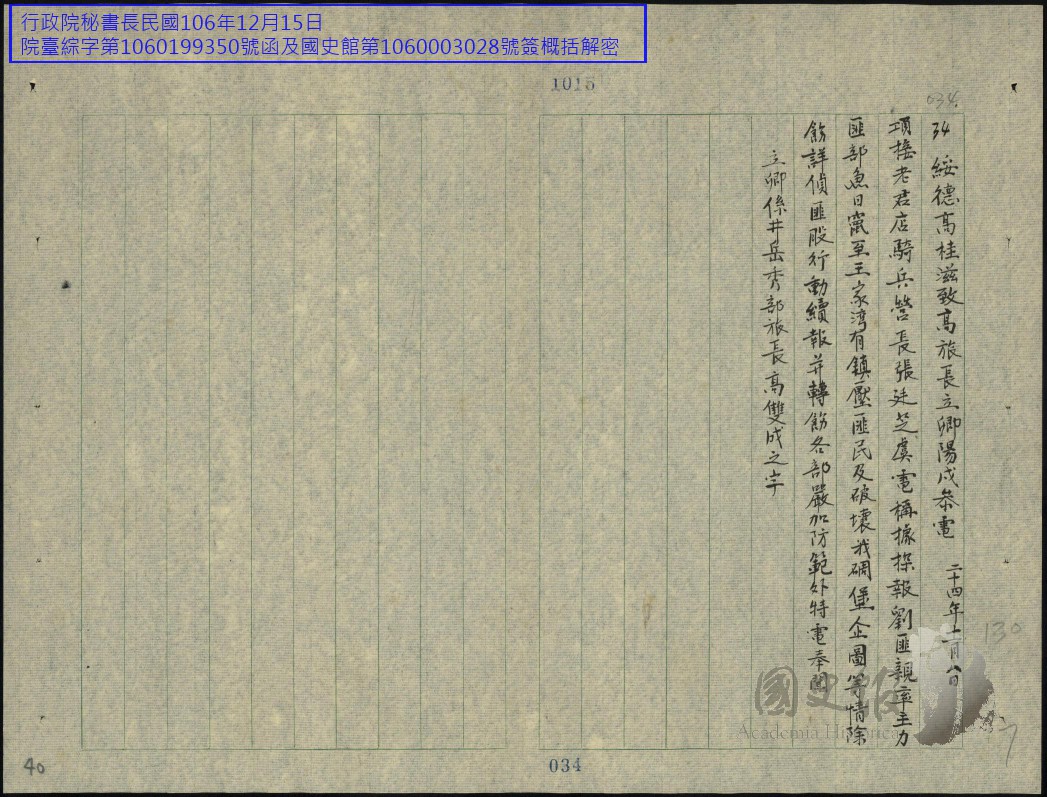 行政院秘書長民國106年12月15日
院臺綜字第1060199350號函及國史館第1060003028號簽概括解密
1015
034
34 綏德高桂滋致高旅長立卿陽戌叅電 二十四年十一月八日
項接老君店騎兵營長張廷芝虞電稱據探報劉匪親率主力
匪部魚日竄至王家湾有鎮壓匪民及破壞我碉堡企圖等情除
飭詳偵匪股行動續報并轉飭各部嚴加防範外特電奉聞
立卿係井岳秀部旅長高雙成之字
130
國史館
Academia Historica
40
034